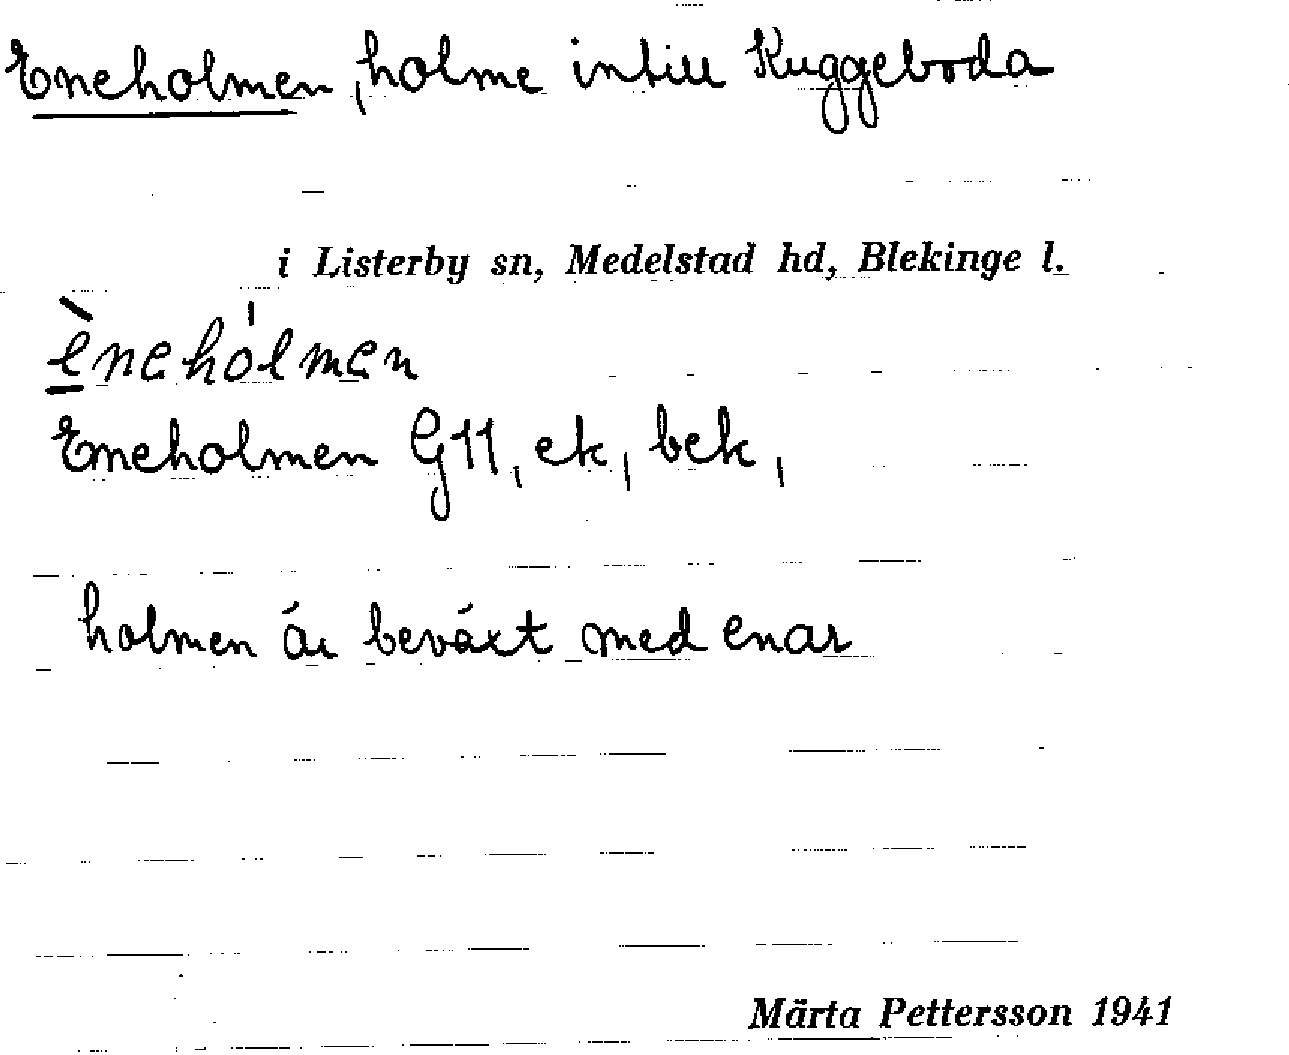 Eneholmen, holme intill Kuggeboda
i Listerby sn, Medelstad hd, Blekinge l.
ènehólmen
Eneholmen G11, ek, bek,
holmen är beväxt med enar
Märta Pettersson 1941